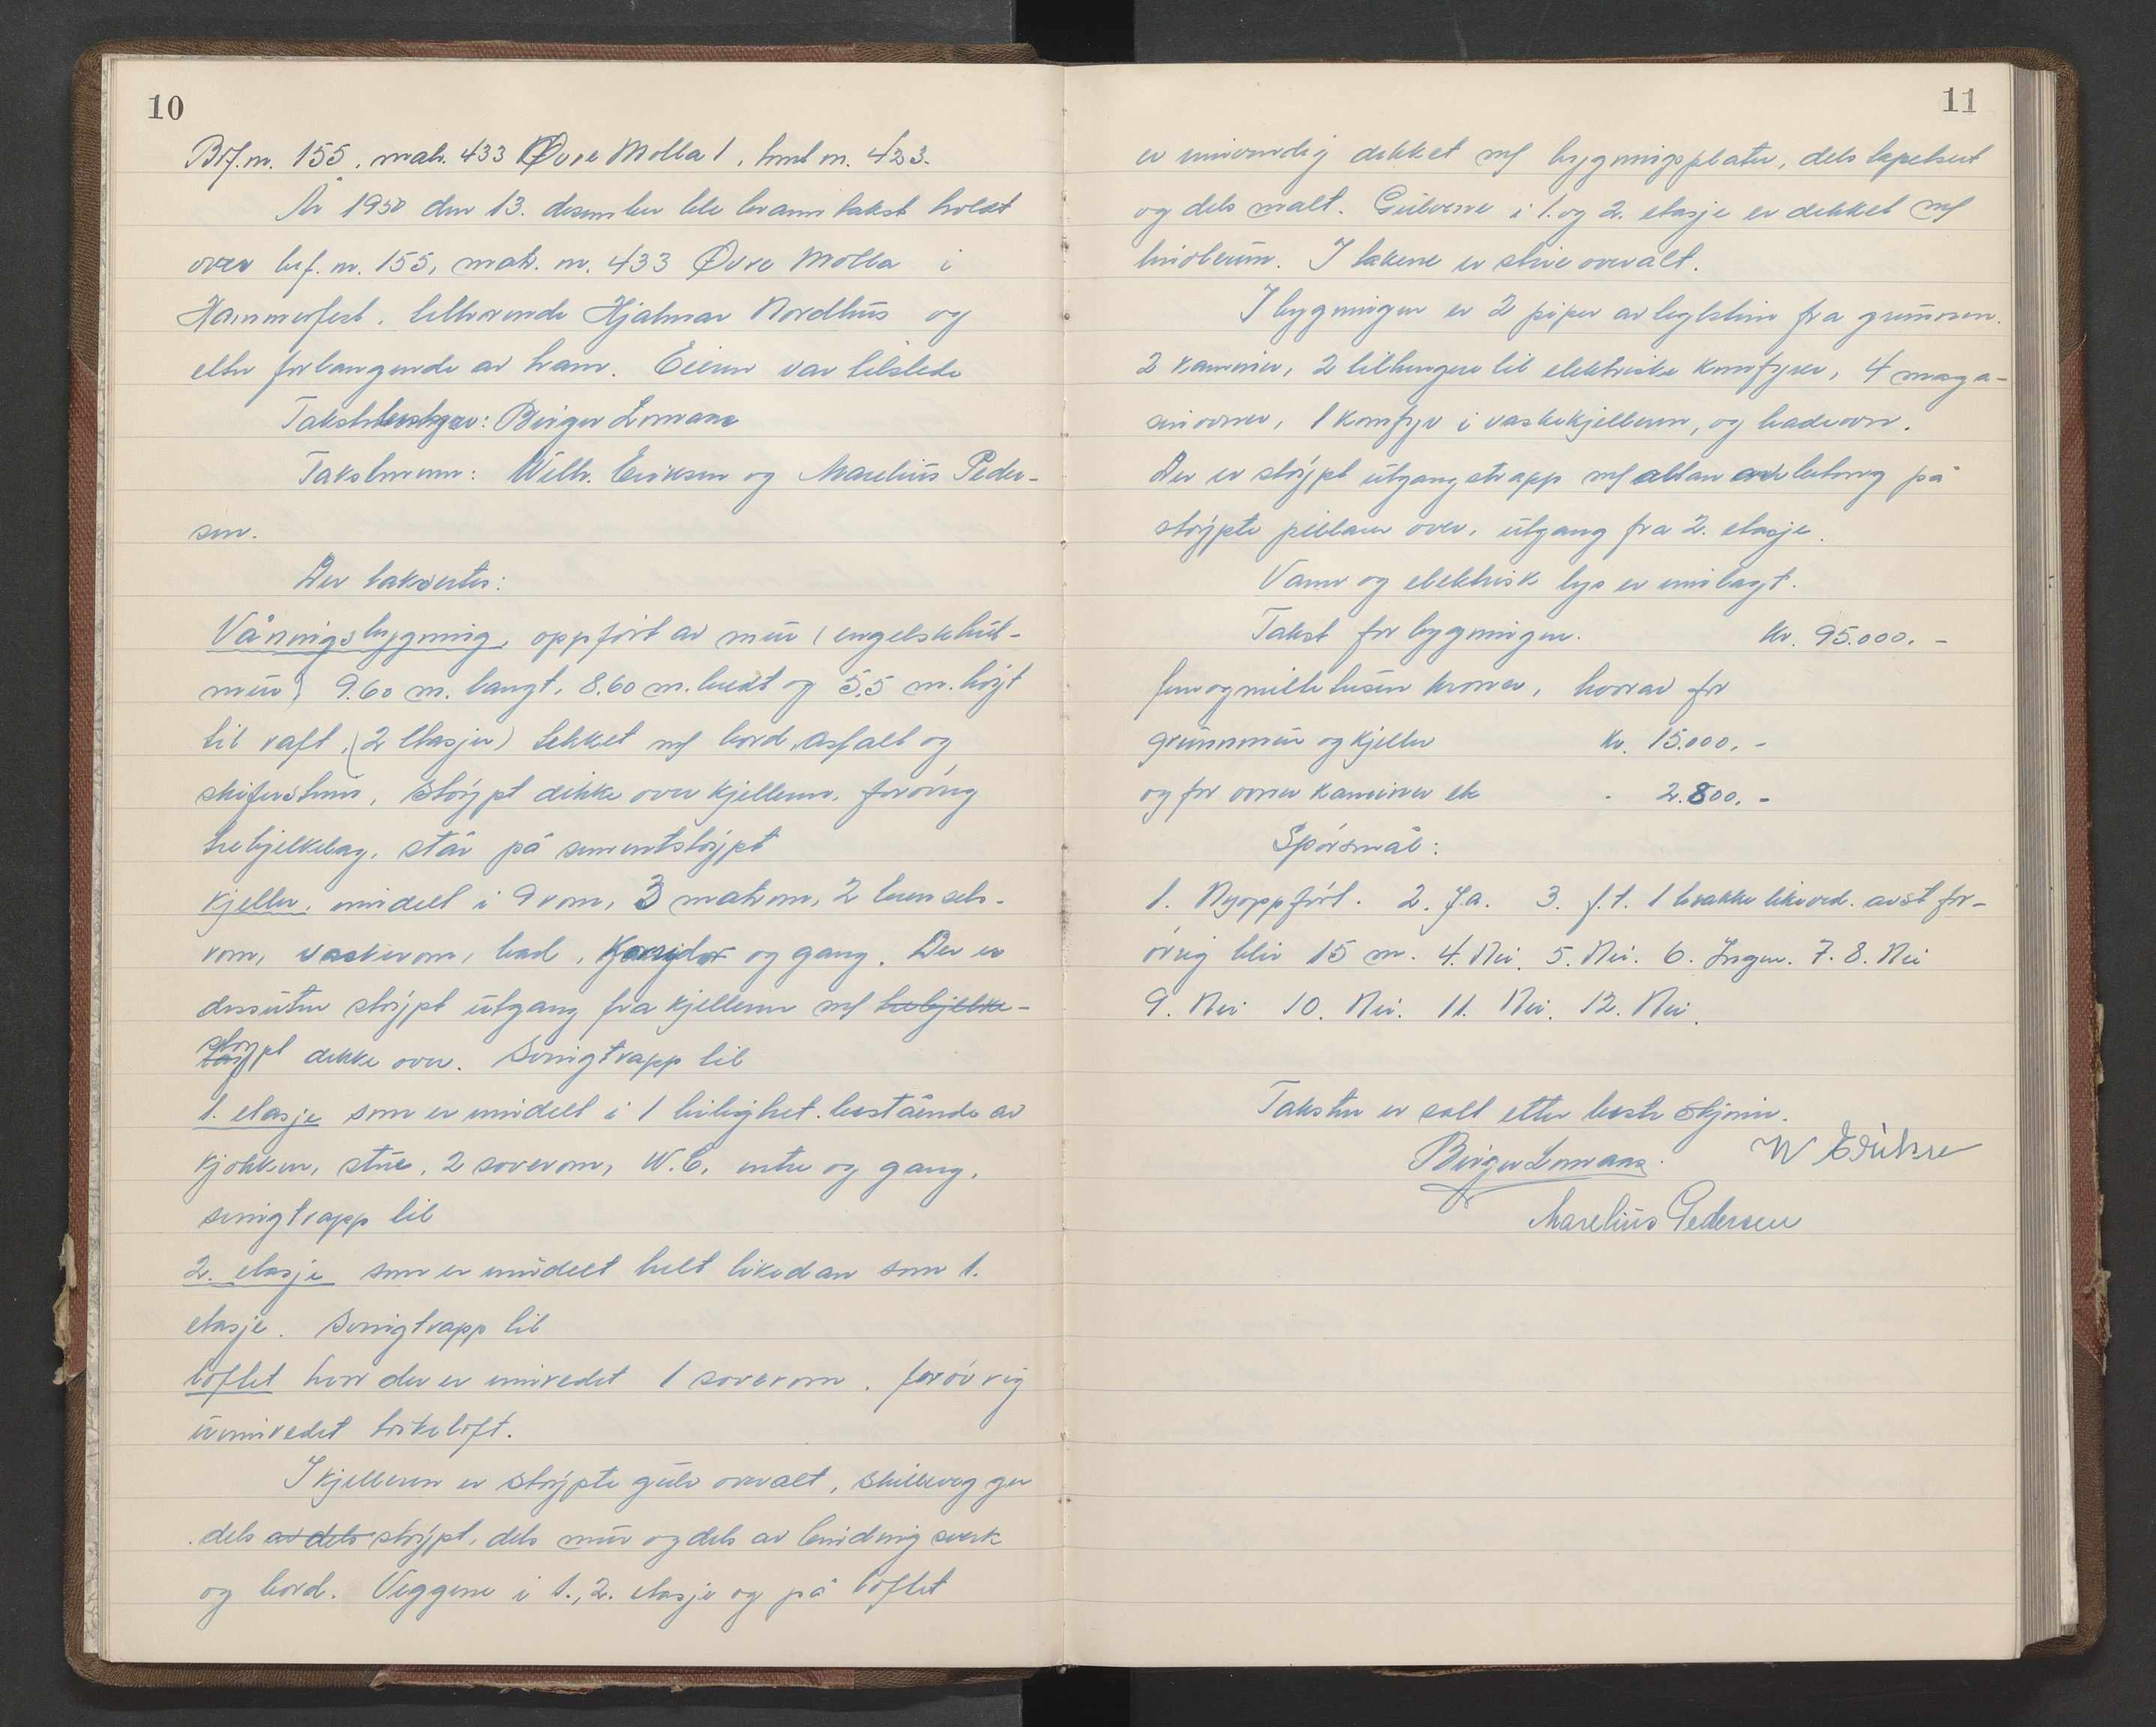 10
Brf.nr. 155, matr. 433 Øvre Molla 1, hml nr. 423.
År 1950 den 13. desember ble branntakst holdt
over brf. nr. 155, matr. nr. 433 Øvre Molla i
Hammerfest, tilhørende Hjalmar Nordhus og
etter forlangende av ham. Eieren var tilstede
Takstbestyrer: Birger Lorvaas
Takstmenn: Wilh. Eriksen og Marelius Peder-
sen.
Der taksertes:
Våningsbygning, oppført av mur (engelsk hul-
mur) 9.60 m. langt, 8.60 m. bredt og 5,5 m. høgt
til raft, (2 etasjer) tekket m/ bord, asfalt og
skiferstein, støypt dekke over kjelleren, forøvrig
trebjelkelag, står på sementstøypt
kjeller, inndelt i 9 rom, 3 matrom, 2 brensels-
rom, vaskerom, bad, korridor og gang. Der er
dessuten støypt utgang fra kjelleren m/ trebjelke-
lag støypt dekke over. Svingtrapp til
1. etasje som er inndelt i 1 leilighet bestående av
kjøkken, stue, 2 soverom, W.C, entre og gang,
svingtrapp til
2. etasje som er inndelt helt likedan som 1.
etasje. Svingtrapp til
loftet hvor der er innredet 1 soverom, forøvrig
uinnredet tørkeloft.
I kjelleren er støypte gulv overalt, skillevegger
dels av dels støypt, dels mur og dels av bindingsverk
og bord. Veggene i 1., 2. etasje og på loftet
11
er innvendig dekket m/ bygningsplater, dels tapetsert
og dels malt. Gulvene i 1. og 2. etasje er dekket m/
linoleum. I takene er stive overalt.
I bygningen er 2 piper av teglstein fra grunnen.
2 kaminer, 2 tilhengere til elektriske komfyrer, 4 maga-
sinovner, 1 komfyr i vaskekjelleren, og badeovn.
Der er støypt utgangstrapp m/ altan av betong på
støypte pillarer over, utgang fra 2. etasje.
Vann og elektrisk lys er innlagt.
Takst for bygningen. Kr. 95.000.-
femognitti tusen kroner, hvorav for
grunnmur og kjeller Kr. 15.000.-
og for ovner kaminer etc " 2.800.-
Spørsmål:
1. Nyoppført. 2. Ja. 3. f.t. 1 brakke likeved. avst for-
øvrig blir 15 m. 4. Nei. 5. Nei. 6. Ingen. 7. 8. Nei
9. Nei 10. Nei. 11. Nei. 12. Nei.
Taksten er satt etter beste skjønn.
Birger Lorvaas. W Eriksen
Marelius Pedersen